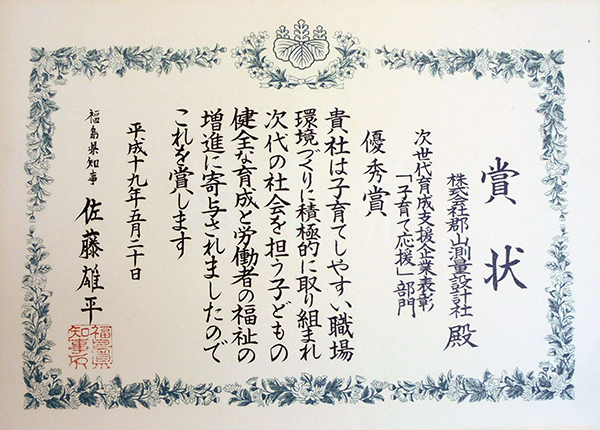 賞状
株式会社郡山測量設計社 殿
次世代育成支援企業表彰
「子育て応援」部門
優秀賞
貴社は子育てしやすい職場
環境づくりに積極的に取り組まれ
次代の社会を担う子どもの
健全な育成と労働者の福祉の
増進に寄与されましたので
これを賞します
平成十九年五月二十日
福島県知事 佐藤雄平
福島県
知事印